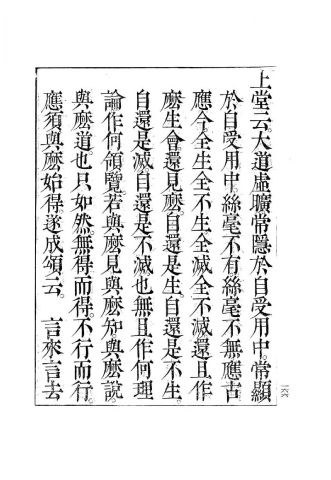 上堂云。大道虛曠常隱於自受用中。常顯
於自受用中。絲毫不有絲毫不無應古
應今。全生全不生全滅全不滅還且作
麼生會還見麼。自還是生自還是不生
自還是滅自還是不滅也無且作何理
論作何領覽若與麼見與麼知與麼說
與麼道。也只如然。無得而得。不行而行。
應須與麼始得。遂成頌云。　言來言去